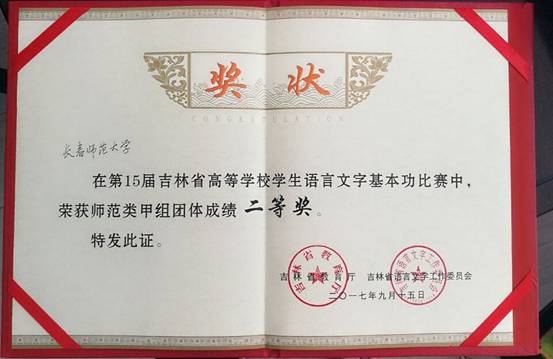 奖状
CONGRATULATION
长春师范大学
在第15届吉林省高等学校学生语言文字基本功比赛中,
荣获师范类甲组团体成绩 二等奖。
特发此证。
吉林省教育厅 吉林省语言文字工作委员会
二〇一七年九月十五日
吉林省教育厅